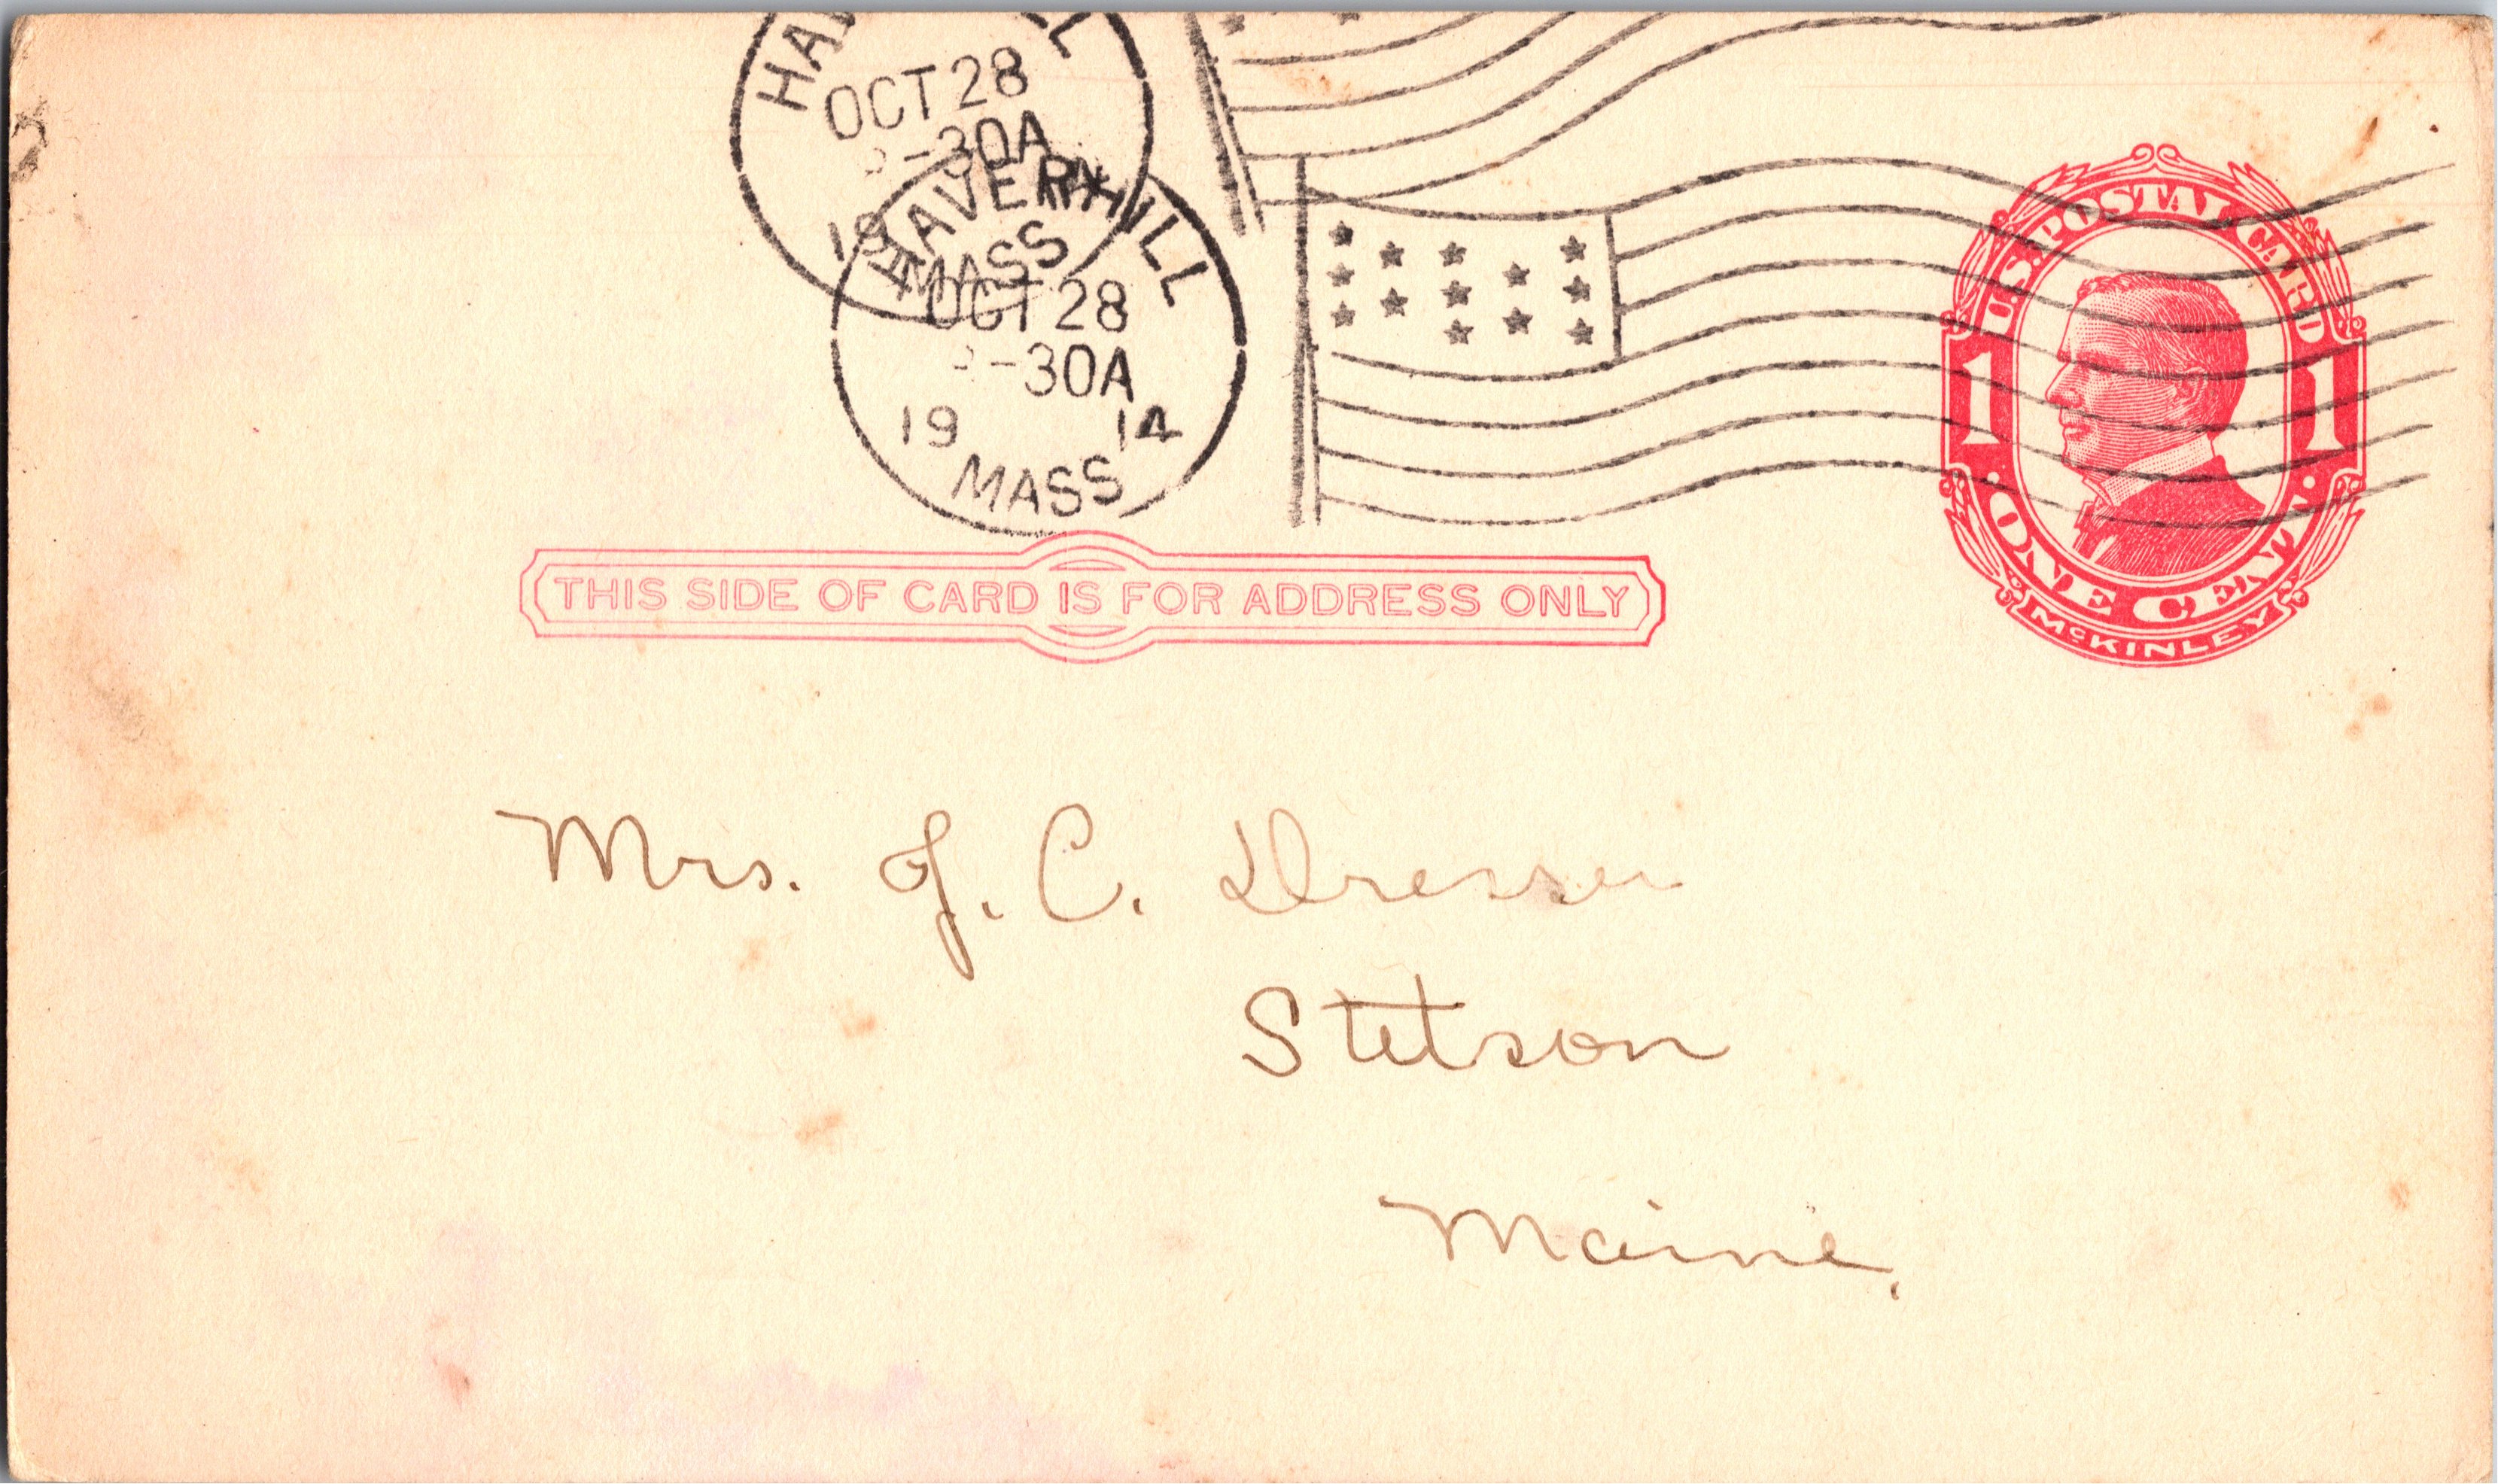 HAV LL
OCT 28
-30A
19
MASS
HAVERHILL
OCT 28
-30A
19 14
MASS
U.S. POSTAL CARD
1 1
· ONE CENT ·
McKINLEY
THIS SIDE OF CARD IS FOR ADDRESS ONLY
Mrs. J. C. Dresser
Stetson
Maine.